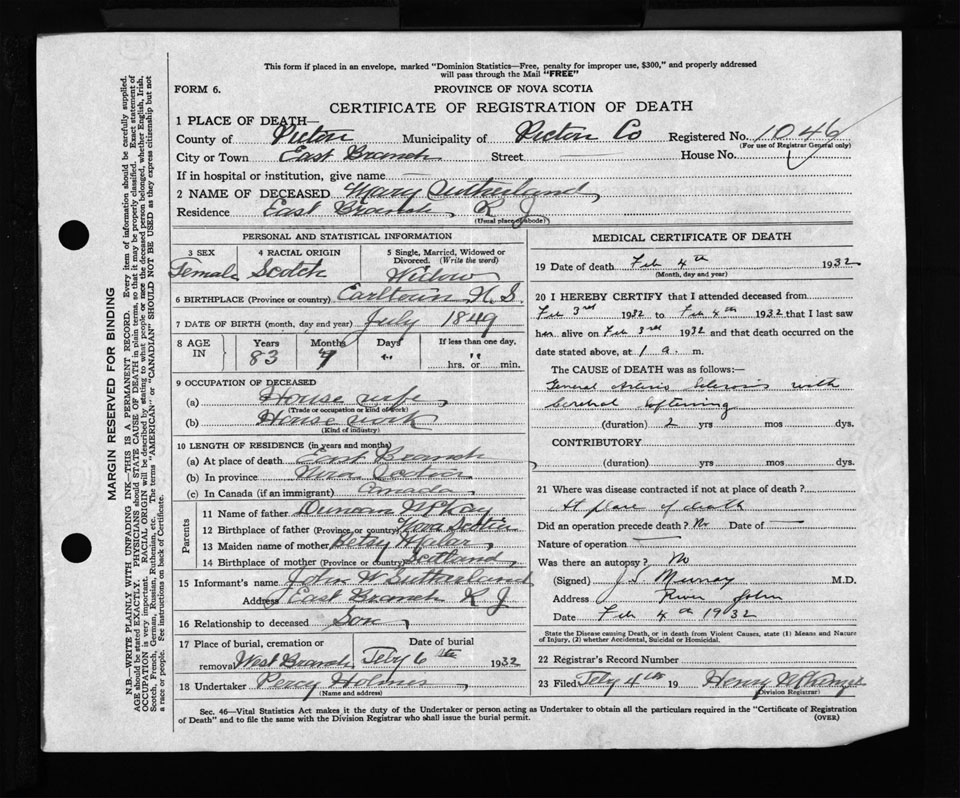 This form if placed in an envelope, marked "Dominion Statistics—Free, penalty for improper use, $300," and properly addressed
will pass through the Mail "FREE"
FORM 6.
PROVINCE OF NOVA SCOTIA
CERTIFICATE OF REGISTRATION OF DEATH
1 PLACE OF DEATH—
County of Pictou Municipality of Pictou Co Registered No. 1046
(For use of Registrar General only)
City or Town East Branch Street House No.
If in hospital or institution, give name
2 NAME OF DECEASED Mary Sutherland
Residence East Branch, R J
(Usual place of abode)
PERSONAL AND STATISTICAL INFORMATION
3 SEX 4 RACIAL ORIGIN 5 Single, Married, Widowed or
Divorced. (Write the word)
Female Scotch Widow
6 BIRTHPLACE (Province or country) Earltown N.S.
7 DATE OF BIRTH (month, day and year) July 1849
8 AGE IN Years Months Days If less than one day,
83 7 " " hrs. or min.
9 OCCUPATION OF DECEASED
(a) House wife
(Trade or occupation or kind of work)
(b) House work
(Kind of industry)
10 LENGTH OF RESIDENCE (in years and months)
(a) At place of death East Branch
(b) In province Nova Scotia
(c) In Canada (if an immigrant) Canada
Parents
11 Name of father Duncan McKay
12 Birthplace of father (Province or country) Nova Scotia
13 Maiden name of mother Betsy
14 Birthplace of mother (Province or country) Scotland
15 Informant's name John W Sutherland
Address East Branch R J
16 Relationship to deceased Son
17 Place of burial, cremation or Date of burial
removal West Branch, Feby 6th 1932
18 Undertaker Percy Holmes
(Name and address)
MEDICAL CERTIFICATE OF DEATH
19 Date of death Feb 4th 1932
(Month, day and year)
20 I HEREBY CERTIFY that I attended deceased from
Feb 3rd 1932 to Feb 4th 1932 that I last saw
her alive on Feb 3rd 1932 and that death occurred on
date stated above, at 1 a. m.
The CAUSE of DEATH was as follows:—
General Arterio Sclerosis with
Cerebral Softening
(duration) 2 yrs mos dys.
CONTRIBUTORY
(duration) yrs. mos. dys.
21 Where was disease contracted if not at place of death?
At place of death
Did an operation precede death? No Date of
Nature of operation
Was there an autopsy? No
(Signed) J.S. Murray M.D.
Address River John
Date Feb 4th 1932
State the Disease causing Death, or in death from Violent Causes, state (1) Means and Nature
of Injury, (2) whether Accidental, Suicidal or Homicidal.
22 Registrar's Record Number
23 Filed Feby 4th 19 Henry
(Division Registrar)
Sec. 46—Vital Statistics Act makes it the duty of the Undertaker or person acting as Undertaker to obtain all the particulars required in the "Certificate of Registration
of Death" and to file the same with the Division Registrar who shall issue the burial permit.
(OVER)
MARGIN RESERVED FOR BINDING
N.B.—WRITE PLAINLY WITH UNFADING INK—THIS IS A PERMANENT RECORD. Every item of information should be carefully supplied.
AGE should be stated EXACTLY. PHYSICIANS should STATE CAUSE OF DEATH in plain terms, so that it may be properly classified. Exact statement of
OCCUPATION is very important. RACIAL ORIGIN will be described by stating to what people or race the deceased person belonged, whether English, Irish,
Scotch, French, German, Russian, Ruthenian, etc. The terms "AMERICAN" or "CANADIAN" SHOULD NOT BE USED as they express citizenship but not
a race or people. See instructions on back of Certificate.